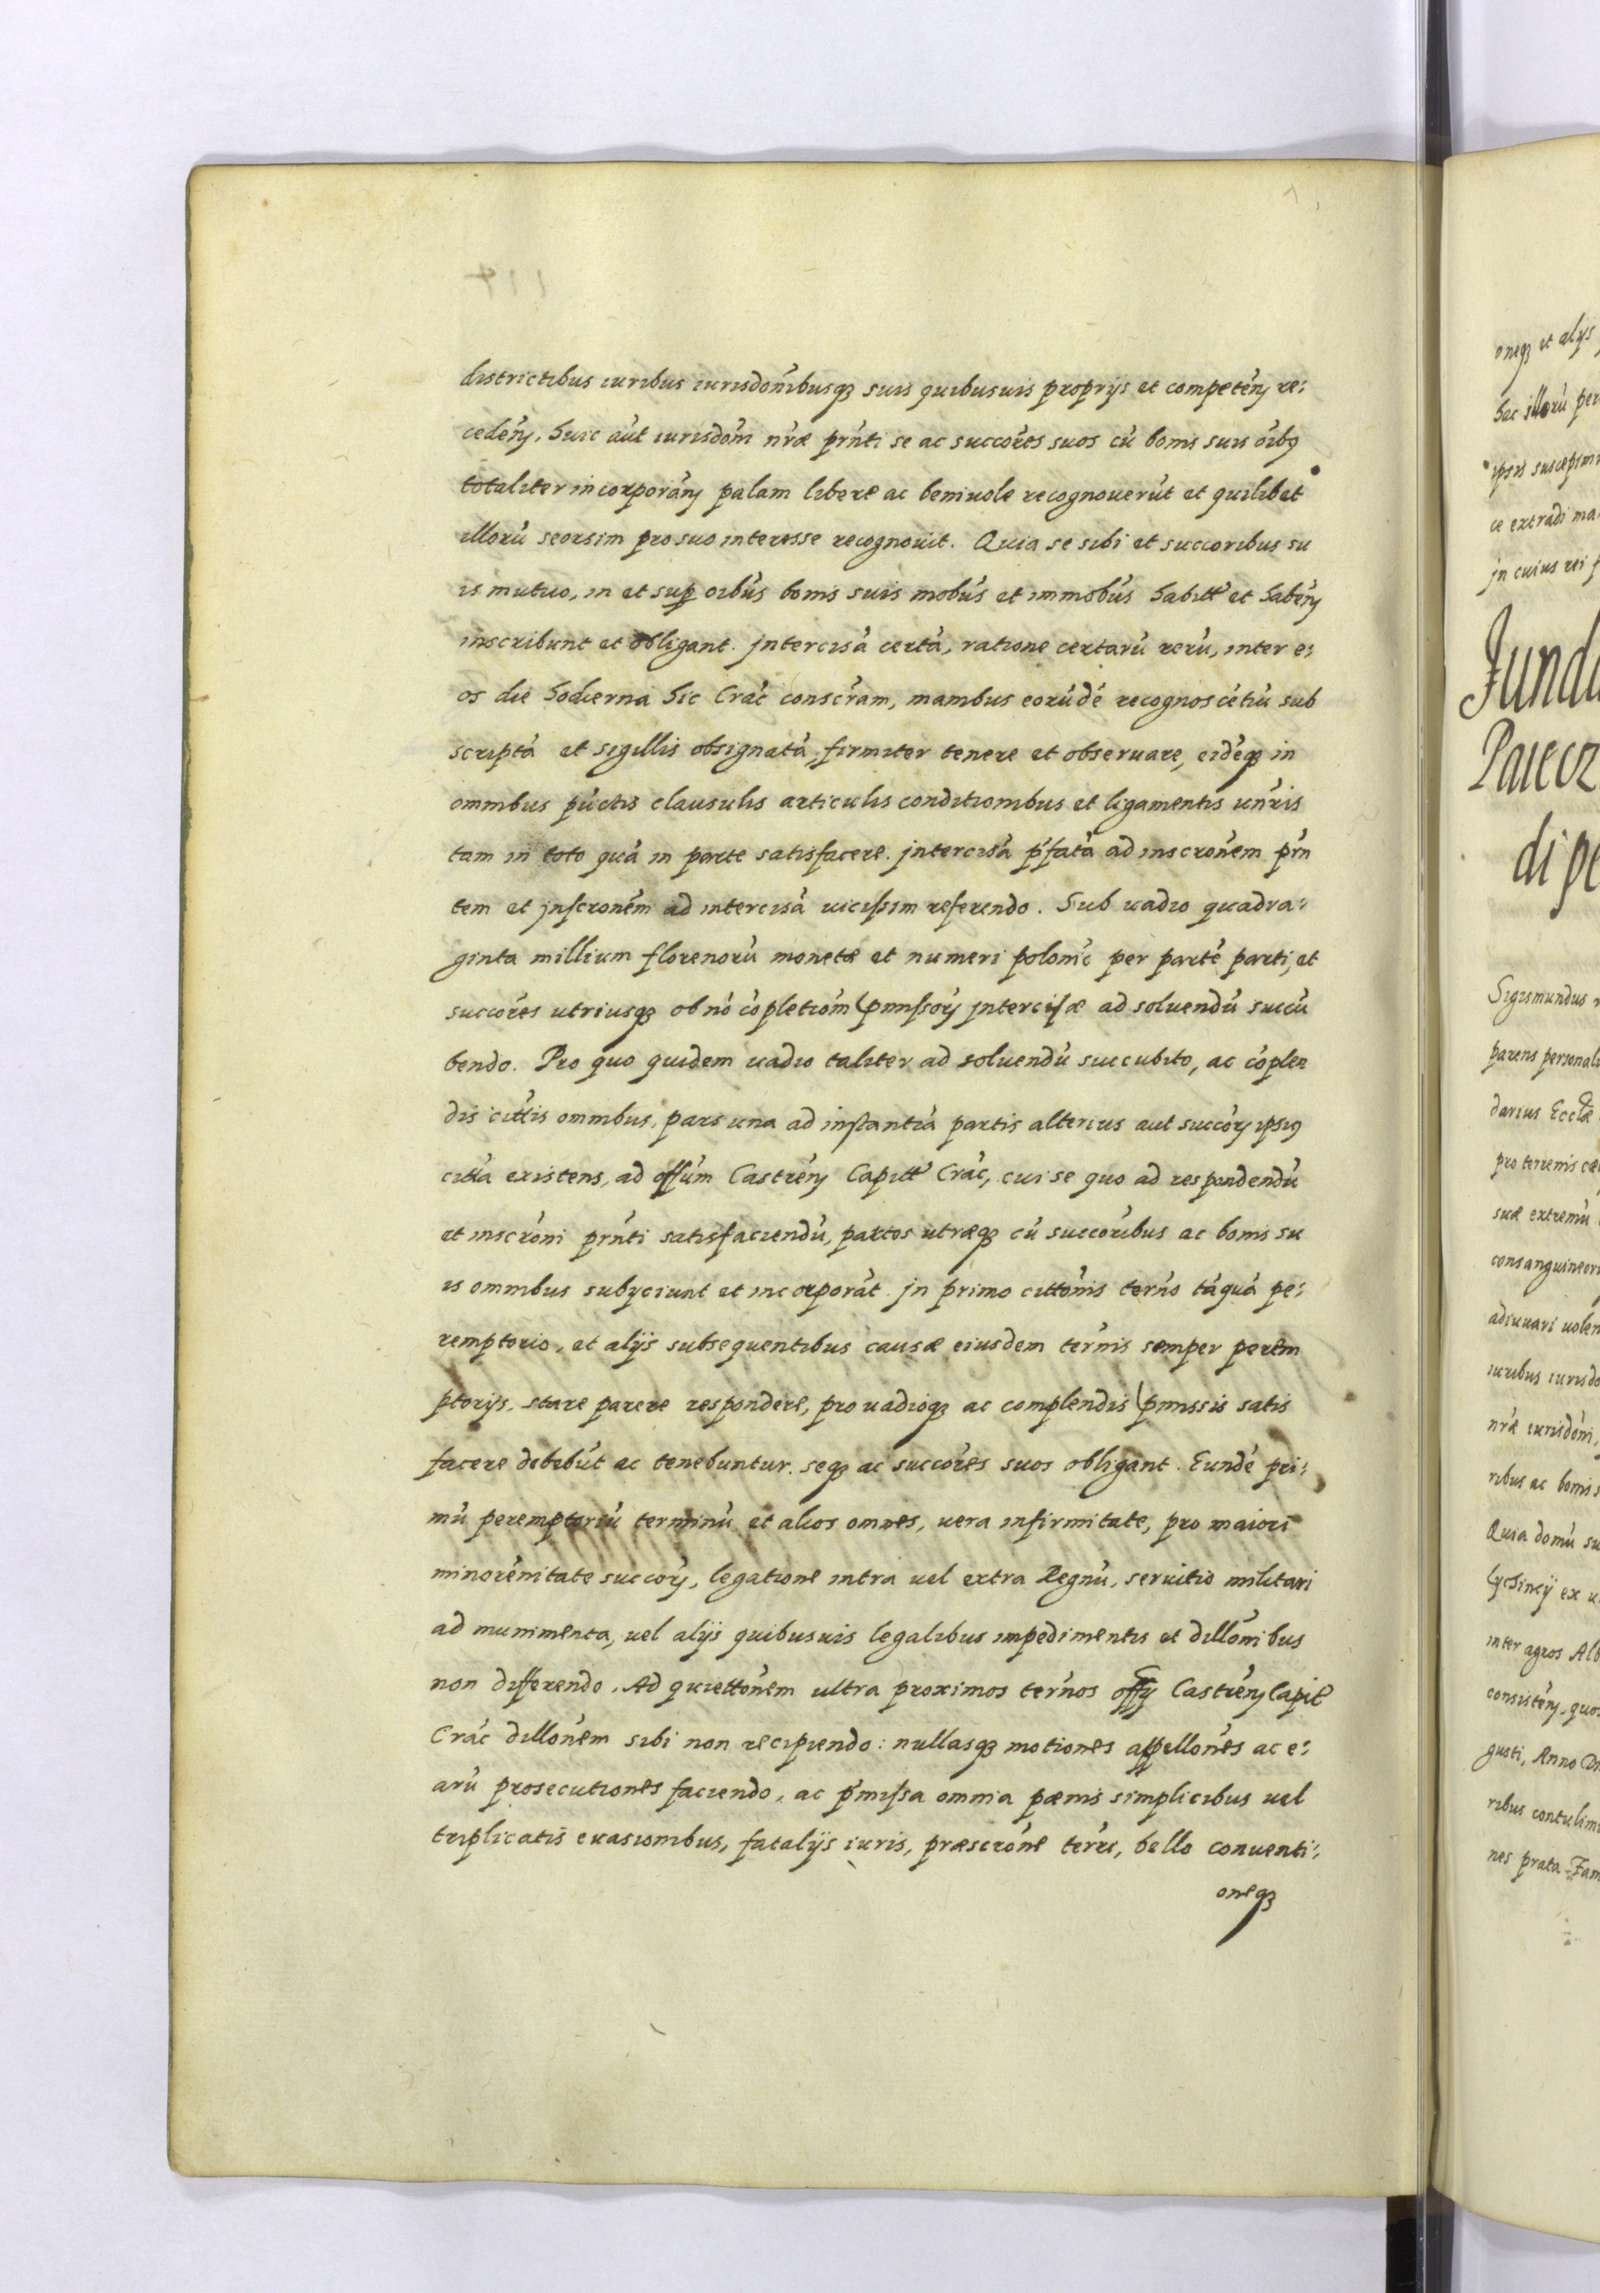 districtibus iuribus iurisdoñibusqȝ suis quibusuis proprijs et competeñ re:
cedeñ, huic aút iurisdoñi nŕæ pŕnti se ac succóres suos cú bonis suis óibꝯ
totaliter incorporáń palam libere ac beniuole recognouerút et quilibet
illorú seorsim pro suo interesse recognouit. Quia se sibi et succoribus su
is mutuo, in et suꝑ oibús bonis suis mobús et immobús habitt et habeń
inscribunt et obligant. jntercisá certá, ratione certarú rerú, inter e:
os die hodierna hic Crác conscŕam, manibus eorúdé recognoscétiú sub
scriptá et sigillis obsignatá, firmiter tenere et obseruare, eidéqȝ in
omnibus púctis clausulis articulis conditionibus et ligamentis vńris
tam in toto quá in parte satisfacere. jntercisá ṕfatá ad inscrońem pŕn
tem et jnscroném ad intercisá uicissim referendo. Sub uadio quadra:
ginta millium florenorú monetæ et numeri poloníc per parté parti, et
succóres utriusqȝ ob nó cópletióm pmissorꝝ jntercisæ ad soluendú succú
bendo. Pro quo quidem uadio taliter ad soluendú succubito, ac cóplen
dis cittis omnibus, pars una ad instantiá partis alterius aut succorꝝ ipsiꝯ
citta existens, ad offúm Castreń Capitt Crác, cui se quo ad respondendú
et inscróni pŕnti satisfaciendú, partes utræqȝ cú succoribus ac bonis su
is omnibus subijciunt et incorporát. jn primo cittónis terńo táquá pe:
remptorio, et alijs subsequentibus causæ eiusdem terńis semper perém
ptorijs, stare parere respondere, pro uadioqȝ ac complendis pmissis satis
facere debebút ac tenebuntur. seqȝ ac succóres suos obligant. Eundé pri:
mú peremptoriú terminú et alios omnes, uera infirmitate, pro maiori
minorénitate succorꝝ, legatione intra uel extra Regnú, seruitio militari
ad munimenta, uel alijs quibusuis legalibus impedimentis et dillónibus
non differendo. Ad quiettónem ultra proximos terńos offij Castreń Capitt
Crác dillónem sibi non recipiendo: nullasqȝ motiones appellónes ac e:
arú prosecutiones faciendo, ac ṕmissa omnia pœnis simplicibus uel
triplicatis euasionibus, fatalijs iuris, præscróne terŕæ, bello conuenti:
oneqȝ
oneqȝ et alijs
hac illorú per
ipsis suscepimu
ce extradi ma
jn cuius rei f
Fund
Paiecz
di pe
Sigismundus
parens personali
darius Eccłæ
pro terrenis cæ
suæ extremú
consanguineor
adiuuari uolen
iuribus iurisdo
nŕæ iurisdoñi,
ribus ac bonis s
Quia domú su
Lychincij ex u
inter agros Alb
consisteń, quos
gusti, Anno Dn
ribus contulim
nes prata Fam